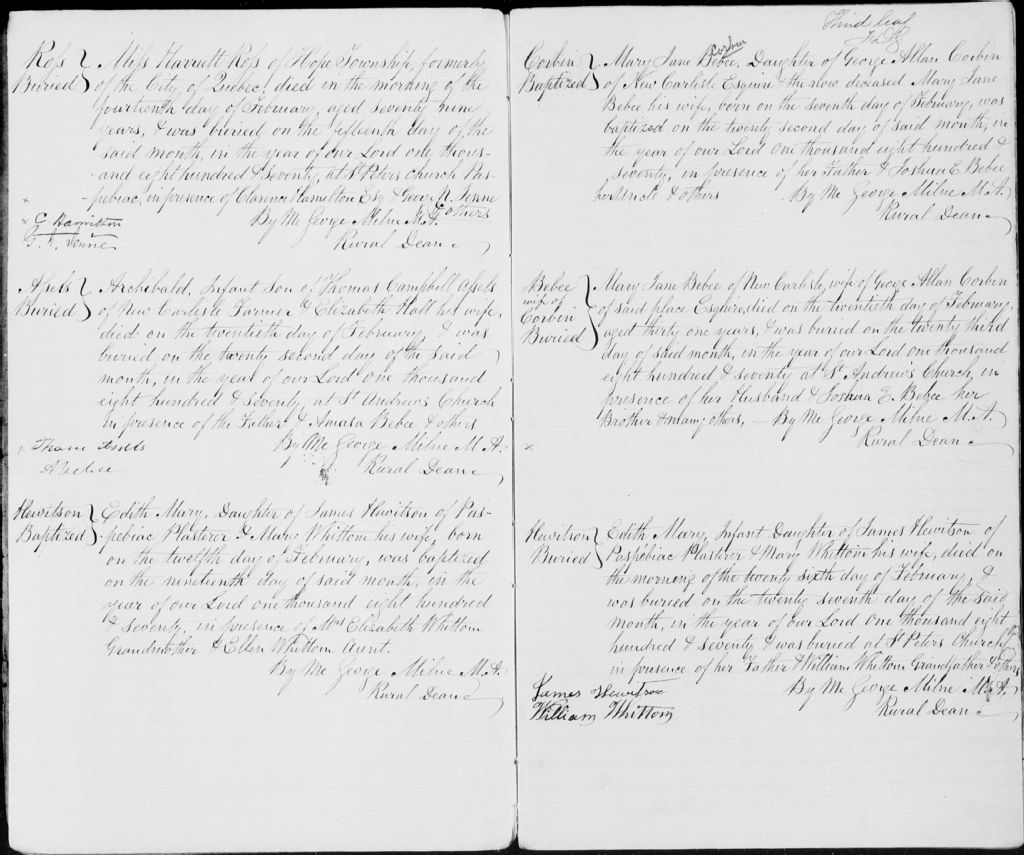 Ross
Buried
Miss Harriett Ross of Hope Township, formerly
of the City of Quebec, died in the morning of the
fourteenth day of February, aged seventy nine
years, & was buried on the fifteenth day of the
said month, in the year of our Lord one thous-
-and eight hundred & seventy, at St Peters Church Pas-
-pebiac, in presence of Clarence Hamilton Esq & George N.
& others
By Me George Milne M.A.
Rural Dean
G. Hamilton
Assels
Buried
Archibald, Infant Son of Thomas Campbell Assels
of New Carlisle Farmer & Elizabeth Hall his wife,
died on the twentieth day of February, & was
buried on the twenty second day of the said
month, in the year of our Lord one thousand
eight hundred & seventy, at St Andrews Church
in presence of the Father & Amasa Bebee & others
By Me George Milne M.A.
Rural Dean
Thom Assels
A Bebee
Hewitson
Baptized
Edith Mary, Daughter of James Hewitson of Pas-
-pebiac Plasterer & Mary Whittom his wife, born
on the twelfth day of February, was baptized
on the nineteenth day of said month, in the
year of our Lord one thousand eight hundred
& seventy, in presence of Mrs Elizabeth Whittom
Grandmother & Ellen Whittom Aunt.
By Me George Milne M.A.
Rural Dean
Third leaf
Corbin
Baptized
Corbin
Mary Jane Bebee, Daughter of George Allan Corbin
of New Carlisle Esquire & the now deceased Mary Jane
Bebee his wife, born on the seventh day of February, was
baptized on the twenty second day of said month, in
the year of our Lord one thousand eight hundred &
seventy, in presence of her Father & Joshua E. Bebee
her Uncle & others By Me George Milne M.A.
Rural Dean
Bebee
wife of
Corbin
Buried
Mary Jane Bebee of New Carlisle, wife of George Allan Corbin
of said place Esquire, died on the twentieth day of February,
aged thirty one years, & was buried on the twenty third
day of said month, in the year of our Lord one thousand
eight hundred & seventy at St Andrew's Church, in
presence of her Husband & Joshua E. Bebee her
Brother & many others, - By Me George Milne M.A.
Rural Dean
Hewitson
Buried
Edith Mary, Infant Daughter of James Hewitson of
Paspebiac Plasterer & Mary Whittom his wife, died on
the morning of the twenty sixth day of February, &
was buried on the twenty seventh day of the said
month, in the year of our Lord one thousand eight
hundred & seventy & was buried at St Peters Church
in presence of her Father & William Whittom Grandfather & others
By Me George Milne M.A.
Rural Dean
James Hewitson
William Whittom